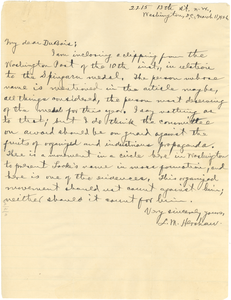 2215 13th St. N.W.,
Washington, D.C., March 11, 1926
My dear DuBois:
I am inclosing a clipping from the
Washington Post of the 10th inst, in relation
to the Spingarn medal. The person whose
name is mentioned in the article may be,
all things considered, the person most deserving
of the medal for the year. I say nothing as
to that; but I do think the committee
on award should be on guard against the
fruits of organized and industrious propaganda.
There is a movement in a circle here in Washington
to present Locke's name in some formation, and
here is one of the evidences. This organized
movement should not count against him;
neither should it count for him.
Very sincerely yours,
L.M. Hershaw